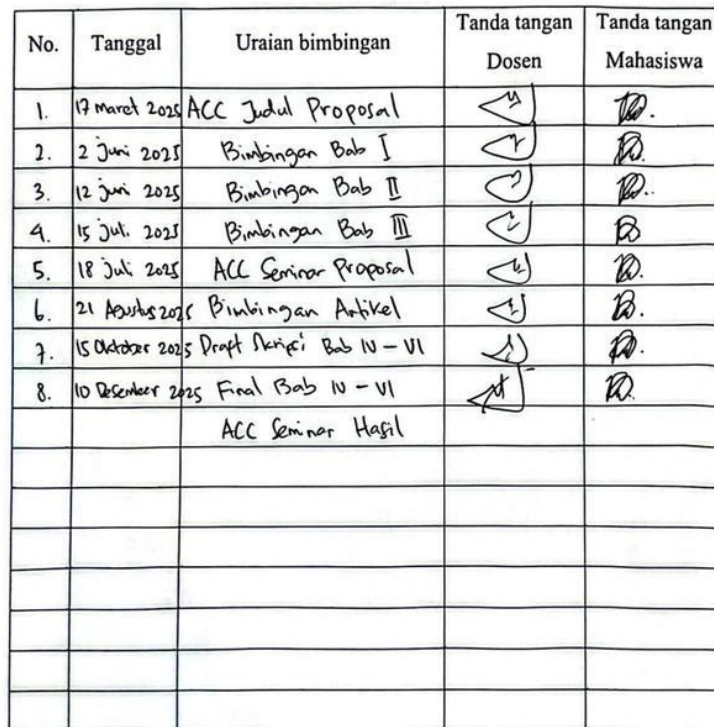 No. Tanggal Uraian bimbingan Tanda tangan Dosen Tanda tangan Mahasiswa
1. 17 maret 2025 ACC Judul Proposal
2. 2 Juni 2025 Bimbingan Bab I
3. 12 juni 2025 Bimbingan Bab II
4. 15 juli 2025 Bimbingan Bab III
5. 18 Juli 2025 ACC Seminar Proposal
6. 21 Agustus 2025 Bimbingan Artikel
7. 15 Oktober 2025 Draft Skripsi Bab IV - VI
8. 10 Desember 2025 Final Bab IV - VI
ACC Seminar Hasil